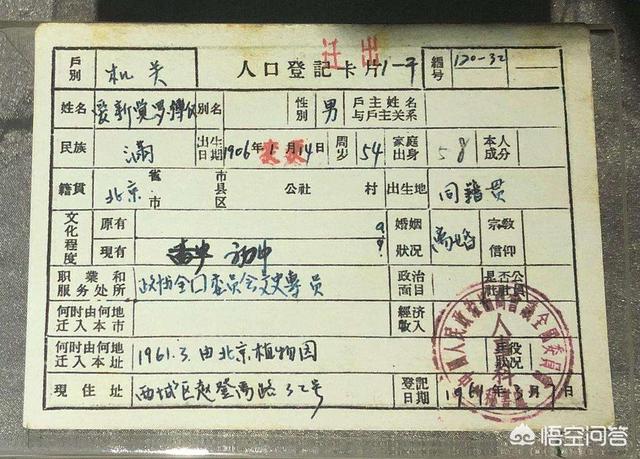 迁出
戶別 机关 人口登記卡片1-子 編号 120-32
姓名 爱新觉罗溥仪 別名 性別 男 戶主姓名与戶主关系
民族 满 出生日期 1906年1月14日 周岁 54 家庭出身 本人成分
籍貫 北京 省市 市县区 公社 村 出生地 同籍贯
文化程度 原有 婚姻状况 离婚 宗教信仰
現有 初中
职業和服务处所 政协全国委员会文史專员 政治面目 是否公社社員
何时由何地迁入本市 經济收入
何时由何地迁入本址 1961.3.由北京植物园 兵役状况
現住址 西城区赵登禹路32号 登記日期 1961年3月7日
悟空问答